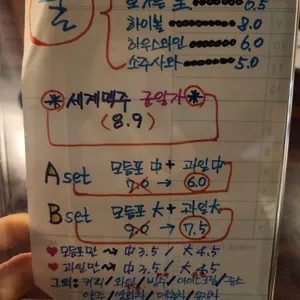 6.5
하이볼 8.0
하우스와인 6.0
소주사와 5.0
* 세계맥주 균일가 *
(8.9)
A set 모듬포 中 + 과일 中
7.0 → 6.0
B set 모듬포 大 + 과일 大
9.0 → 7.5
♥ 모듬포만 → 中 3.5 / 大 4.5
♥ 과일만 → 中 3.5 / 大 4.5
그외: 커피 / 와인 / 빙수 / 아이스크림 /